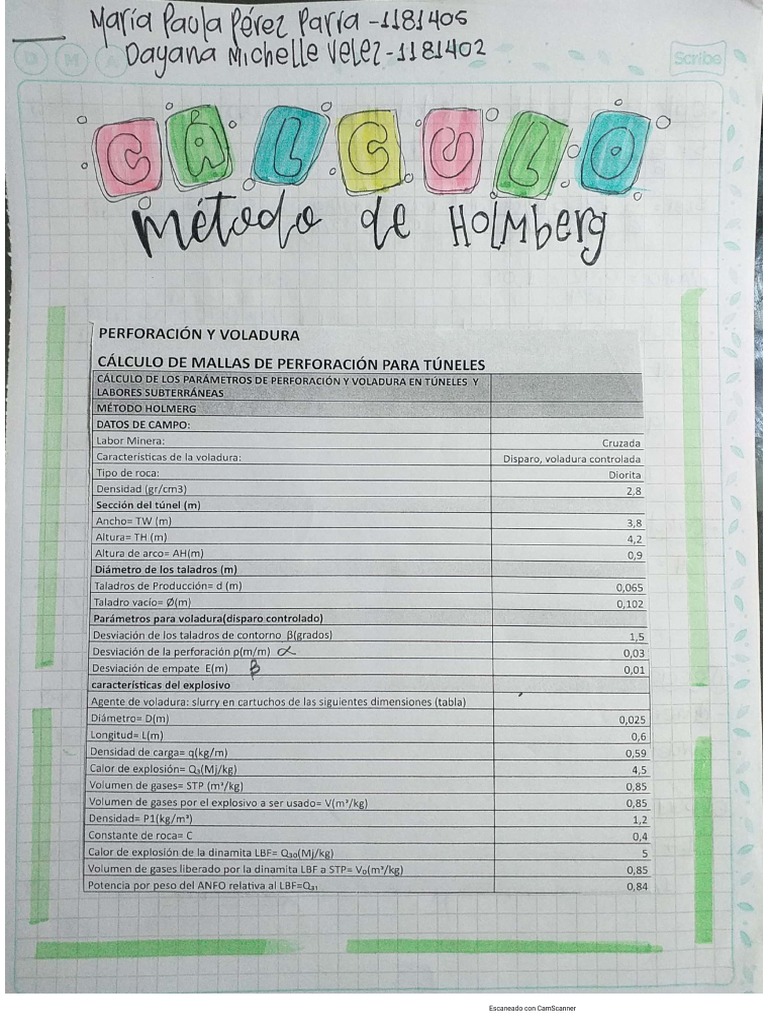 María Paula Pérez Parra - 1181405
Dayana Michelle Velez - 1181402
Scribe
CÁLCULO
Método de Holmberg
PERFORACIÓN Y VOLADURA
CÁLCULO DE MALLAS DE PERFORACIÓN PARA TÚNELES
CÁLCULO DE LOS PARÁMETROS DE PERFORACIÓN Y VOLADURA EN TÚNELES Y
LABORES SUBTERRÁNEAS
MÉTODO HOLMERG
DATOS DE CAMPO:
Labor Minera: Cruzada
Características de la voladura: Disparo, voladura controlada
Tipo de roca: Diorita
Densidad (gr/cm3) 2,8
Sección del túnel (m)
Ancho= TW (m) 3,8
Altura= TH (m) 4,2
Altura de arco= AH(m) 0,9
Diámetro de los taladros (m)
Taladros de Producción= d (m) 0,065
Taladro vacío= Ø(m) 0,102
Parámetros para voladura(disparo controlado)
Desviación de los taladros de contorno β(grados) 1,5
Desviación de la perforación ρ(m/m) α 0,03
Desviación de empate E(m) β 0,01
características del explosivo
Agente de voladura: slurry en cartuchos de las siguientes dimensiones (tabla)
Diámetro= D(m) 0,025
Longitud= L(m) 0,6
Densidad de carga= q(kg/m) 0,59
Calor de explosión= Q₃(Mj/kg) 4,5
Volumen de gases= STP (m³/kg) 0,85
Volumen de gases por el explosivo a ser usado= V(m³/kg) 0,85
Densidad= P1(kg/m³) 1,2
Constante de roca= C 0,4
Calor de explosión de la dinamita LBF= Q₃₀(Mj/kg) 5
Volumen de gases liberado por la dinamita LBF a STP= V₀(m³/kg) 0,85
Potencia por peso del ANFO relativa al LBF=Q₃₁ 0,84
Escaneado con CamScanner